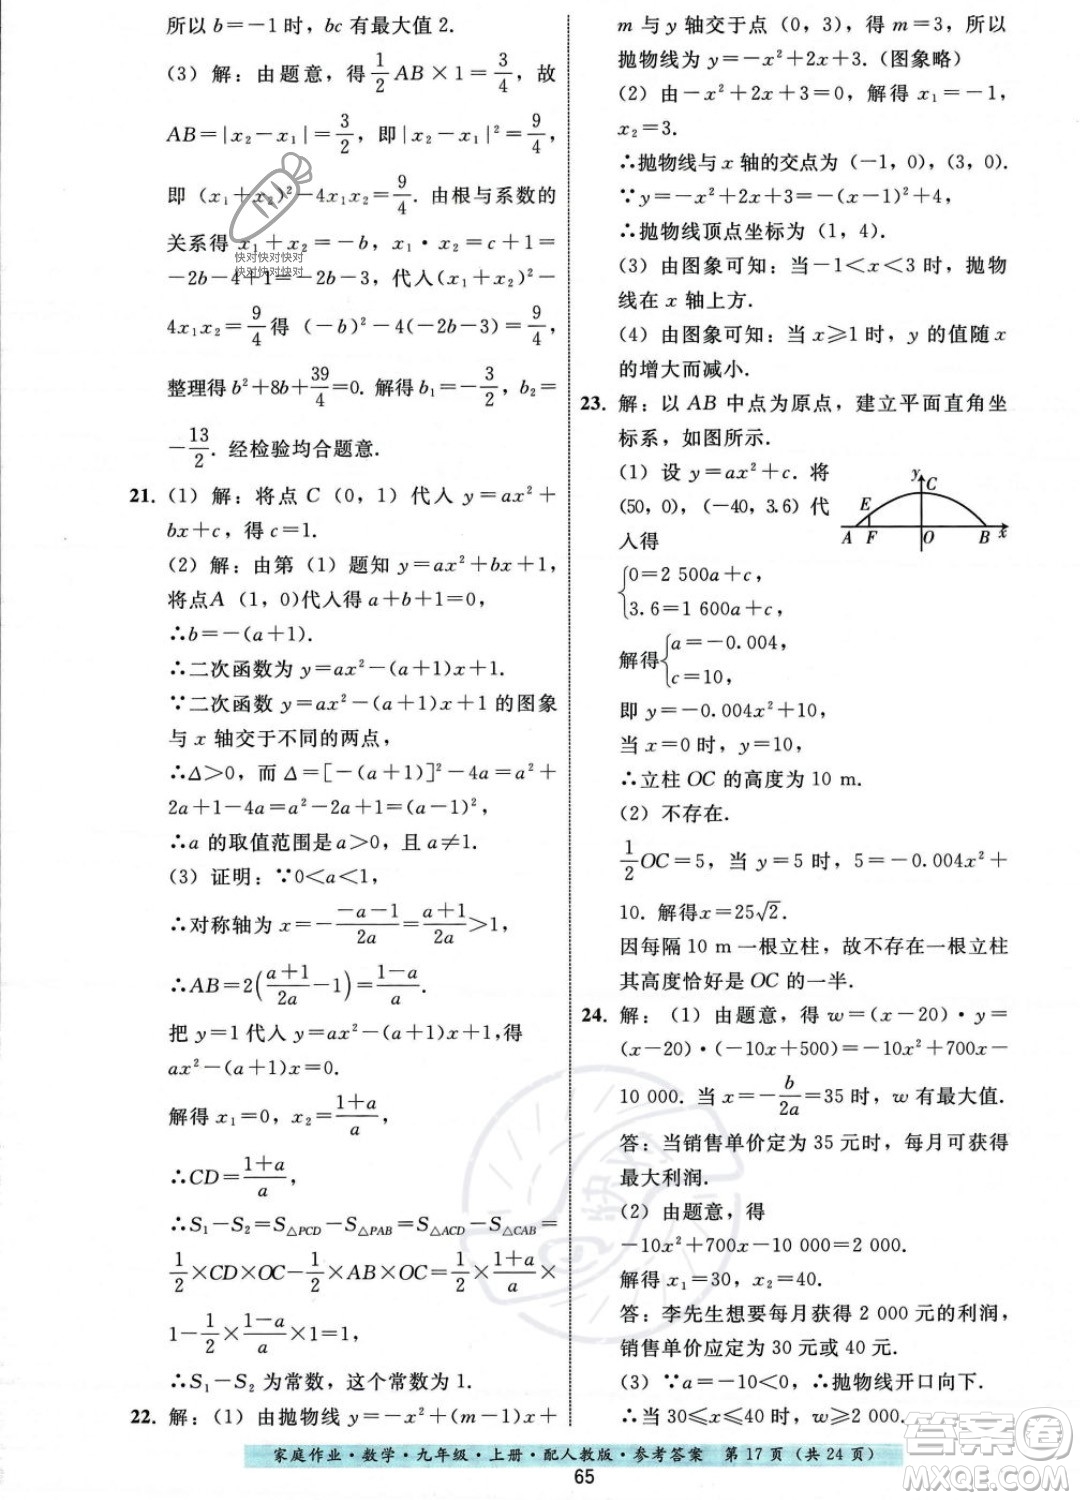 所以 b=-1 时，bc 有最大值 2.
(3) 解：由题意，得 1/2 AB×1=3/4，故
AB=|x₂-x₁|=3/2，即|x₂-x₁|²=9/4，
即 (x₁+x₂)²-4x₁x₂=9/4. 由根与系数的
关系得 x₁+x₂=-b，x₁·x₂=c+1=
快对快对快对
快对快对快对
-2b-4+1=-2b-3，代入(x₁+x₂)²-
4x₁x₂=9/4 得 (-b)²-4(-2b-3)=9/4，
整理得 b²+8b+39/4=0. 解得 b₁=-3/2，b₂=
-13/2. 经检验均合题意.
21. (1) 解：将点 C (0，1) 代入 y=ax²+
bx+c，得 c=1.
(2) 解：由第 (1) 题知 y=ax²+bx+1，
将点A (1，0)代入得 a+b+1=0，
∴b=-(a+1).
∴二次函数为 y=ax²-(a+1)x+1.
∵二次函数 y=ax²-(a+1)x+1 的图象
与 x 轴交于不同的两点，
∴Δ>0，而 Δ=[-(a+1)]²-4a=a²+
2a+1-4a=a²-2a+1=(a-1)²，
∴a 的取值范围是 a>0，且 a≠1.
(3) 证明：∵0<a<1，
∴对称轴为 x=-(-a-1)/2a=(a+1)/2a>1，
∴AB=2((a+1)/2a-1)=(1-a)/a.
把 y=1 代入 y=ax²-(a+1)x+1,得
ax²-(1+a)x=0.
解得 x₁=0，x₂=(1+a)/a，
∴CD=(1+a)/a，
∴S₁-S₂=S△PCD-S△PAB=S△ACD-S△CAB=
1/2×CD×OC-1/2×AB×OC=1/2×(1+a)/a×
1-1/2×(1-a)/a×1=1，
∴S₁-S₂ 为常数，这个常数为 1.
22. 解：(1) 由抛物线 y=-x²+(m-1)x+
m 与 y 轴交于点 (0，3)，得 m=3，所以
抛物线为 y=-x²+2x+3. (图象略)
(2) 由-x²+2x+3=0，解得 x₁=-1，
x₂=3.
∴抛物线与 x 轴的交点为 (-1，0)，(3，0).
∵y=-x²+2x+3=-(x-1)²+4，
∴抛物线顶点坐标为 (1，4).
(3) 由图象可知：当-1<x<3 时，抛物
线在 x 轴上方.
(4) 由图象可知：当 x≥1 时，y 的值随 x
的增大而减小.
23. 解：以 AB 中点为原点，建立平面直角坐
标系，如图所示.
(1) 设 y=ax²+c. 将
(50，0)，(-40，3.6) 代
入得
y C
E
A F O B x
{0=2 500a+c，
3.6=1 600a+c，
解得{a=-0.004，
c=10，
即 y=-0.004x²+10，
当 x=0 时，y=10，
∴立柱 OC 的高度为 10 m.
(2) 不存在.
1/2 OC=5，当 y=5 时，5=-0.004x²+
10. 解得x=25√2.
因每隔 10 m 一根立柱，故不存在一根立柱
其高度恰好是 OC 的一半.
24. 解：(1) 由题意，得 w=(x-20)·y=
(x-20)·(-10x+500)=-10x²+700x-
10 000. 当 x=-b/2a=35 时，w 有最大值.
答：当销售单价定为 35 元时，每月可获得
最大利润.
(2) 由题意，得
-10x²+700x-10 000=2 000.
解得 x₁=30，x₂=40.
答：李先生想要每月获得 2 000 元的利润，
销售单价应定为 30 元或 40 元.
(3) ∵a=-10<0，∴抛物线开口向下.
∴当 30≤x≤40 时，w≥2 000.
家庭作业·数学·九年级·上册·配人教版·参考答案 第 17 页（共 24 页）
65
答案圈
MXQE.COM